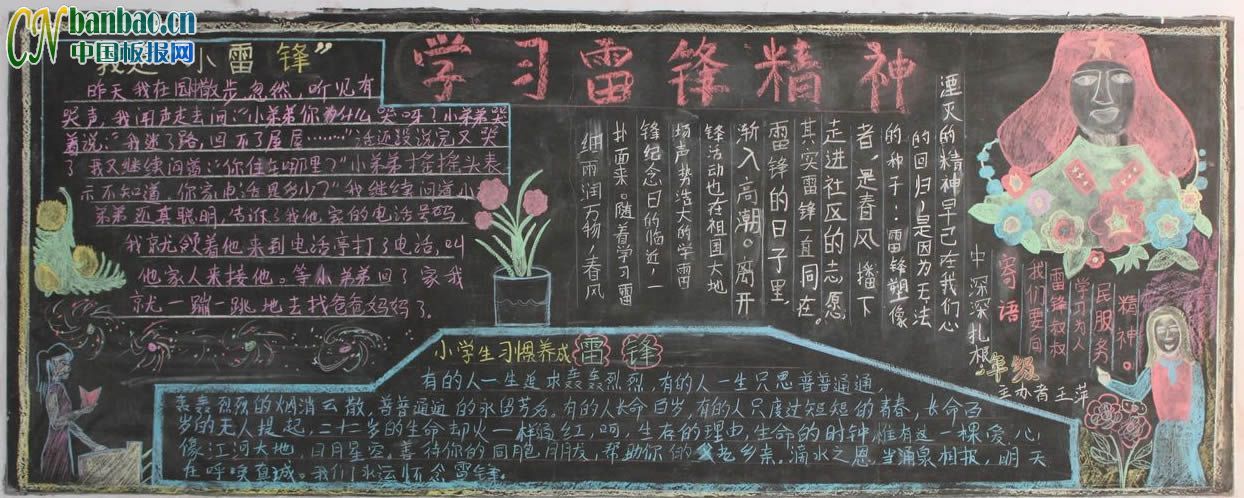 banbao.cn
中国板报网
学习雷锋精神
我是"小雷锋"
昨天我在园散步,忽然,听见有
哭声,我闻声走去问:"小弟弟你为什么哭呀?小弟弟哭
着说:"我迷了路,回不了屋屋……"话还没说完又哭
了我又继续问道:"你住在哪里?"小弟弟摇摇头表
示不知道,你家电话是多少?"我继续问道小
弟弟还算聪明,告诉了我他家的电话号码
我就领着他来到电话亭打了电话,叫
他家人来接他。等小弟弟回了家我
就一蹦一跳地去找爸爸妈妈了.
湮灭的精神早已在我们心
的回归,是因为无法
的种子:雷锋塑像
者,是春风播下
走进社区的志愿
其实雷锋一直同在。
雷锋的日子里,
渐入高潮。离开
锋活动也在祖国大地
场声势浩大的学雷
锋纪念日的临近,一
扑面来。随着学习雷
细雨润万物,春风
中深深扎根
寄语
我们要向
雷锋叔叔
学习为人
民服务
精神。
年级
主办者王萍
小学生习惯养成雷锋
有的人一生追求轰轰烈烈,有的人一生只思普普通通,
轰轰烈烈的烟消云散,普普通通的永留芳名。有的人长命百岁,有的人只度过短短的青春,长命百
岁的无人提起,二十二岁的生命却火一样通红,呵,生存的理由,生命的时钟,惟有这一棵爱心
像江河大地,日月星空,善待你的同胞朋友,帮助你的父老乡亲。滴水之恩,当涌泉相报,明天
在呼唤真诚。我们永远怀念雷锋.